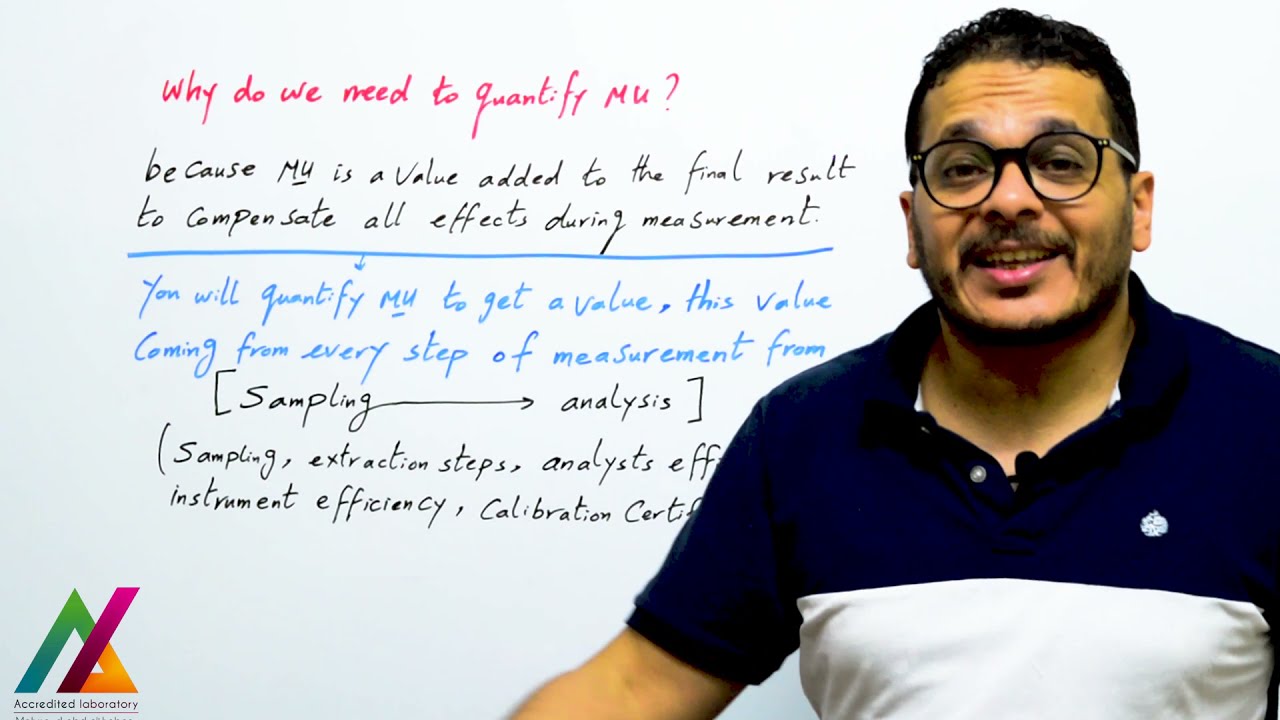 Why do we need to quantify MU?
because MU is a value added to the final result
to compensate all effects during measurement.
You will quantify MU to get a value, this value
Coming from every step of measurement from
[Sampling → analysis]
(Sampling, extraction steps, analysts
instrument efficiency, Calibration
Accredited laboratory